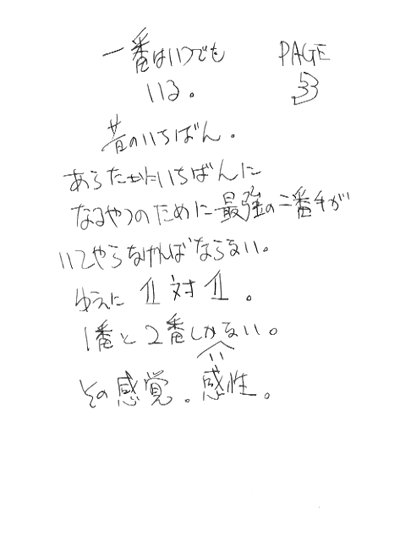 一番はいつでも
いる。
PAGE
33
昔のいちばん。
あらたにいちばんに
なるやつのために最強の二番手が
いてやらなければならない。
ゆえに 1 対 1 。
1番と2番しかない。
い
その感覚。感性。